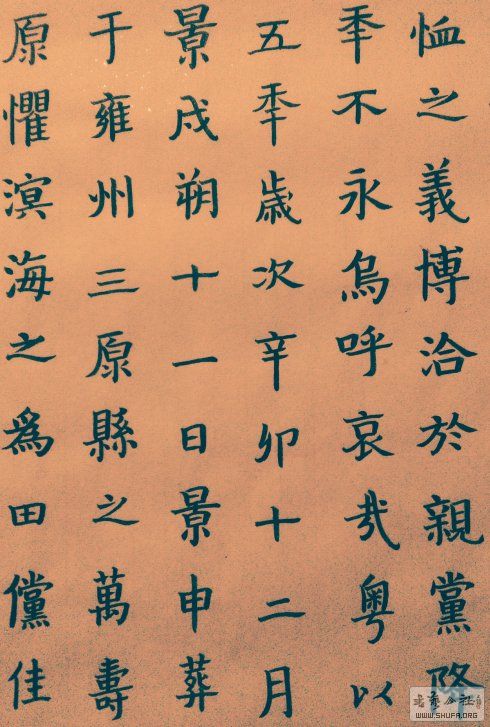 恤之義博洽於親黨降
秊不永烏呼哀哉粤以
五秊歲次辛卯十二月
景戌朔十一日景申葬
于雍州三原縣之萬壽
原懼溟海之爲田儻佳
书艺公社
WWW.SHUFA.ORG